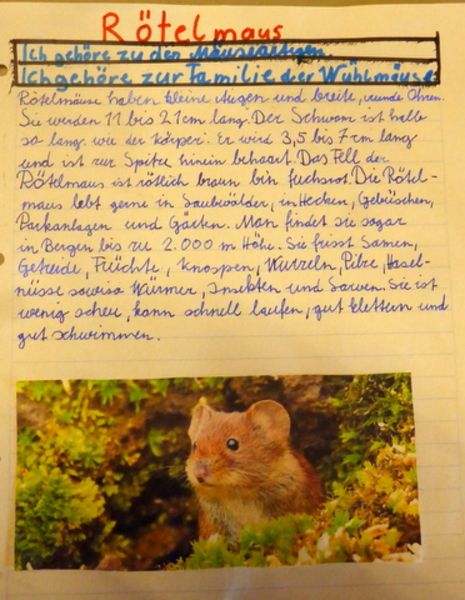 Rötelmaus
Ich gehöre zu den Mäuseartigen
Ich gehöre zur Familie der Wühlmäuse
Rötelmäuse haben kleine Augen und breite, runde Ohren.
Sie werden 11 bis 21 cm lang. Der Schwanz ist halb
so lang wie der Körper. Er wird 3,5 bis 7 cm lang
und ist zur Spitze hinein behaart. Das Fell der
Rötelmaus ist rötlich braun bin fuchsrot. Die Rötel-
maus lebt gerne in Laubwälder, in Hecken, Gebüschen,
Parkanlagen und Gärten. Man findet sie sogar
in Bergen bis zu 2.000 m Höhe. Sie frisst Samen,
Getreide, Früchte, Knospen, Wurzeln, Pilze, Hasel-
nüsse sowiso Würmer, Insekten und Larven. Sie ist
wenig scheu, kann schnell laufen, gut klettern und
gut schwimmen.